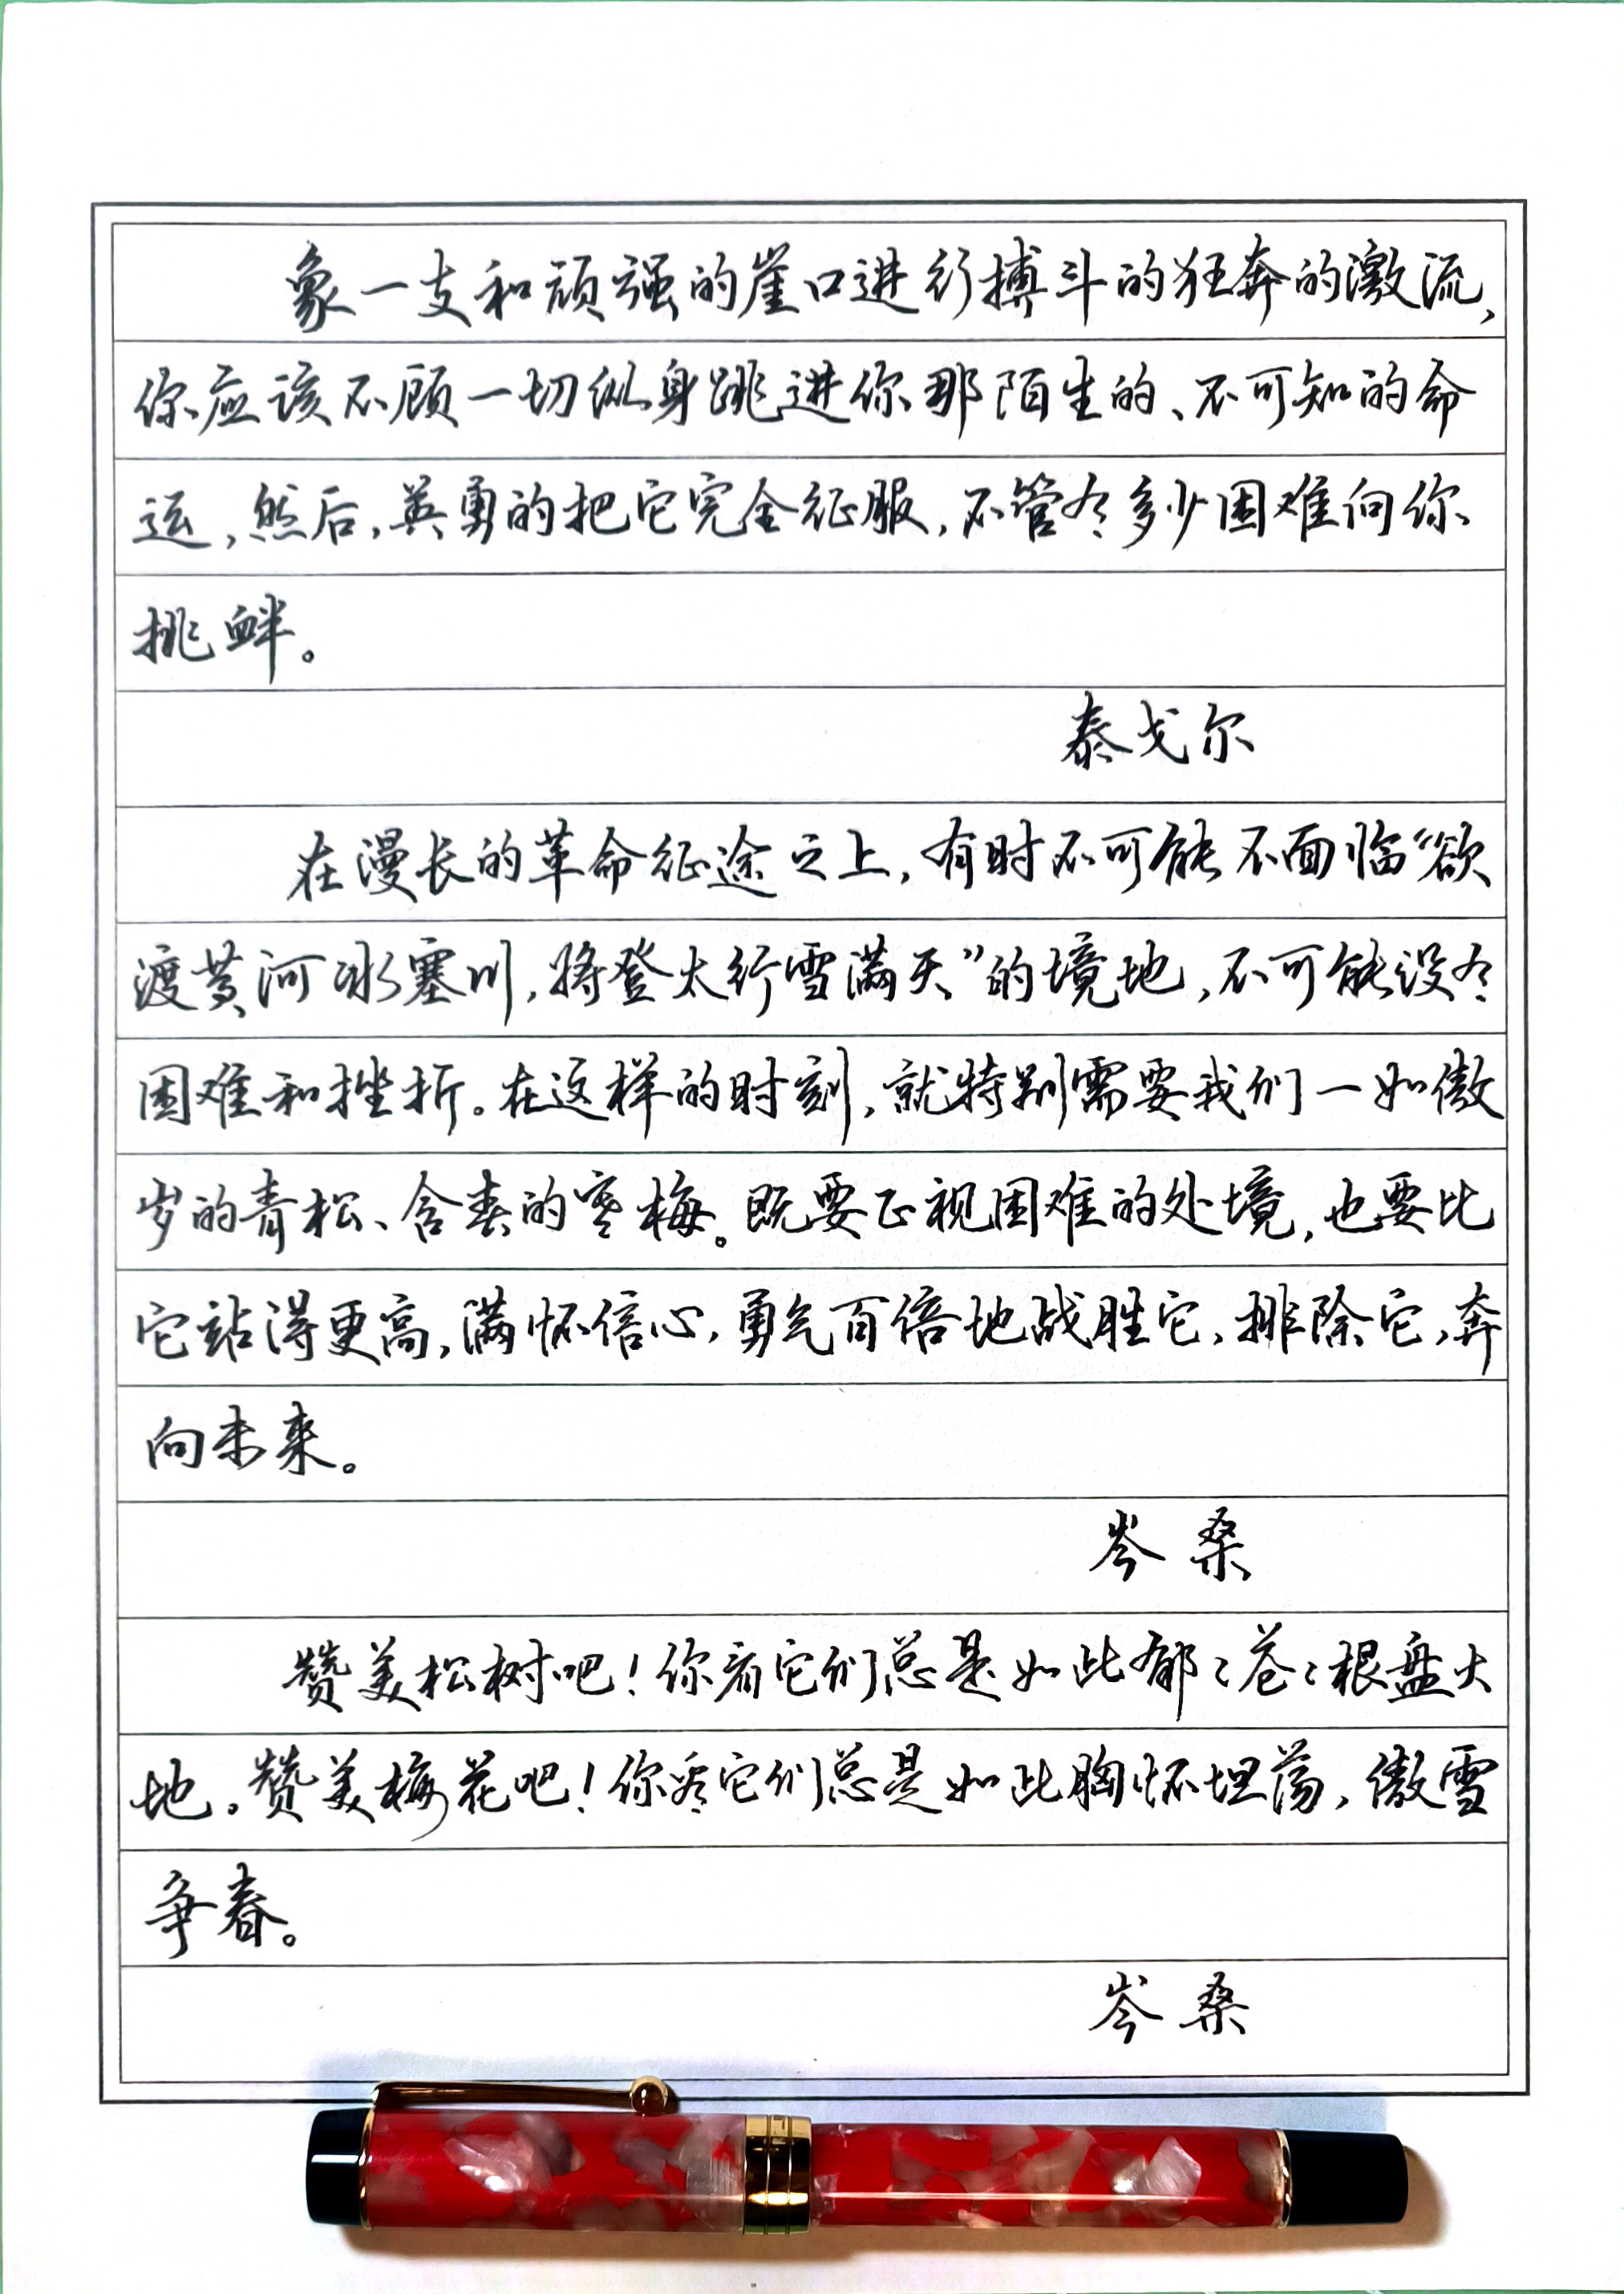 象一支和顽强的崖口进行搏斗的狂奔的激流，
你应该不顾一切纵身跳进你那陌生的、不可知的命
运，然后，英勇的把它完全征服，不管有多少困难向你
挑衅。
泰戈尔
在漫长的革命征途之上，有时不可能不面临“欲
渡黄河冰塞川，将登太行雪满天”的境地，不可能没有
困难和挫折。在这样的时刻，就特别需要我们一如傲
岁的青松、含春的寒梅。既要正视困难的处境，也要比
它站得更高，满怀信心，勇气百倍地战胜它，排除它，奔
向未来。
岑桑
赞美松树吧！你看它们总是如此郁郁苍苍根盘大
地。赞美梅花吧！你看它们总是如此胸怀坦荡，傲雪
争春。
岑桑